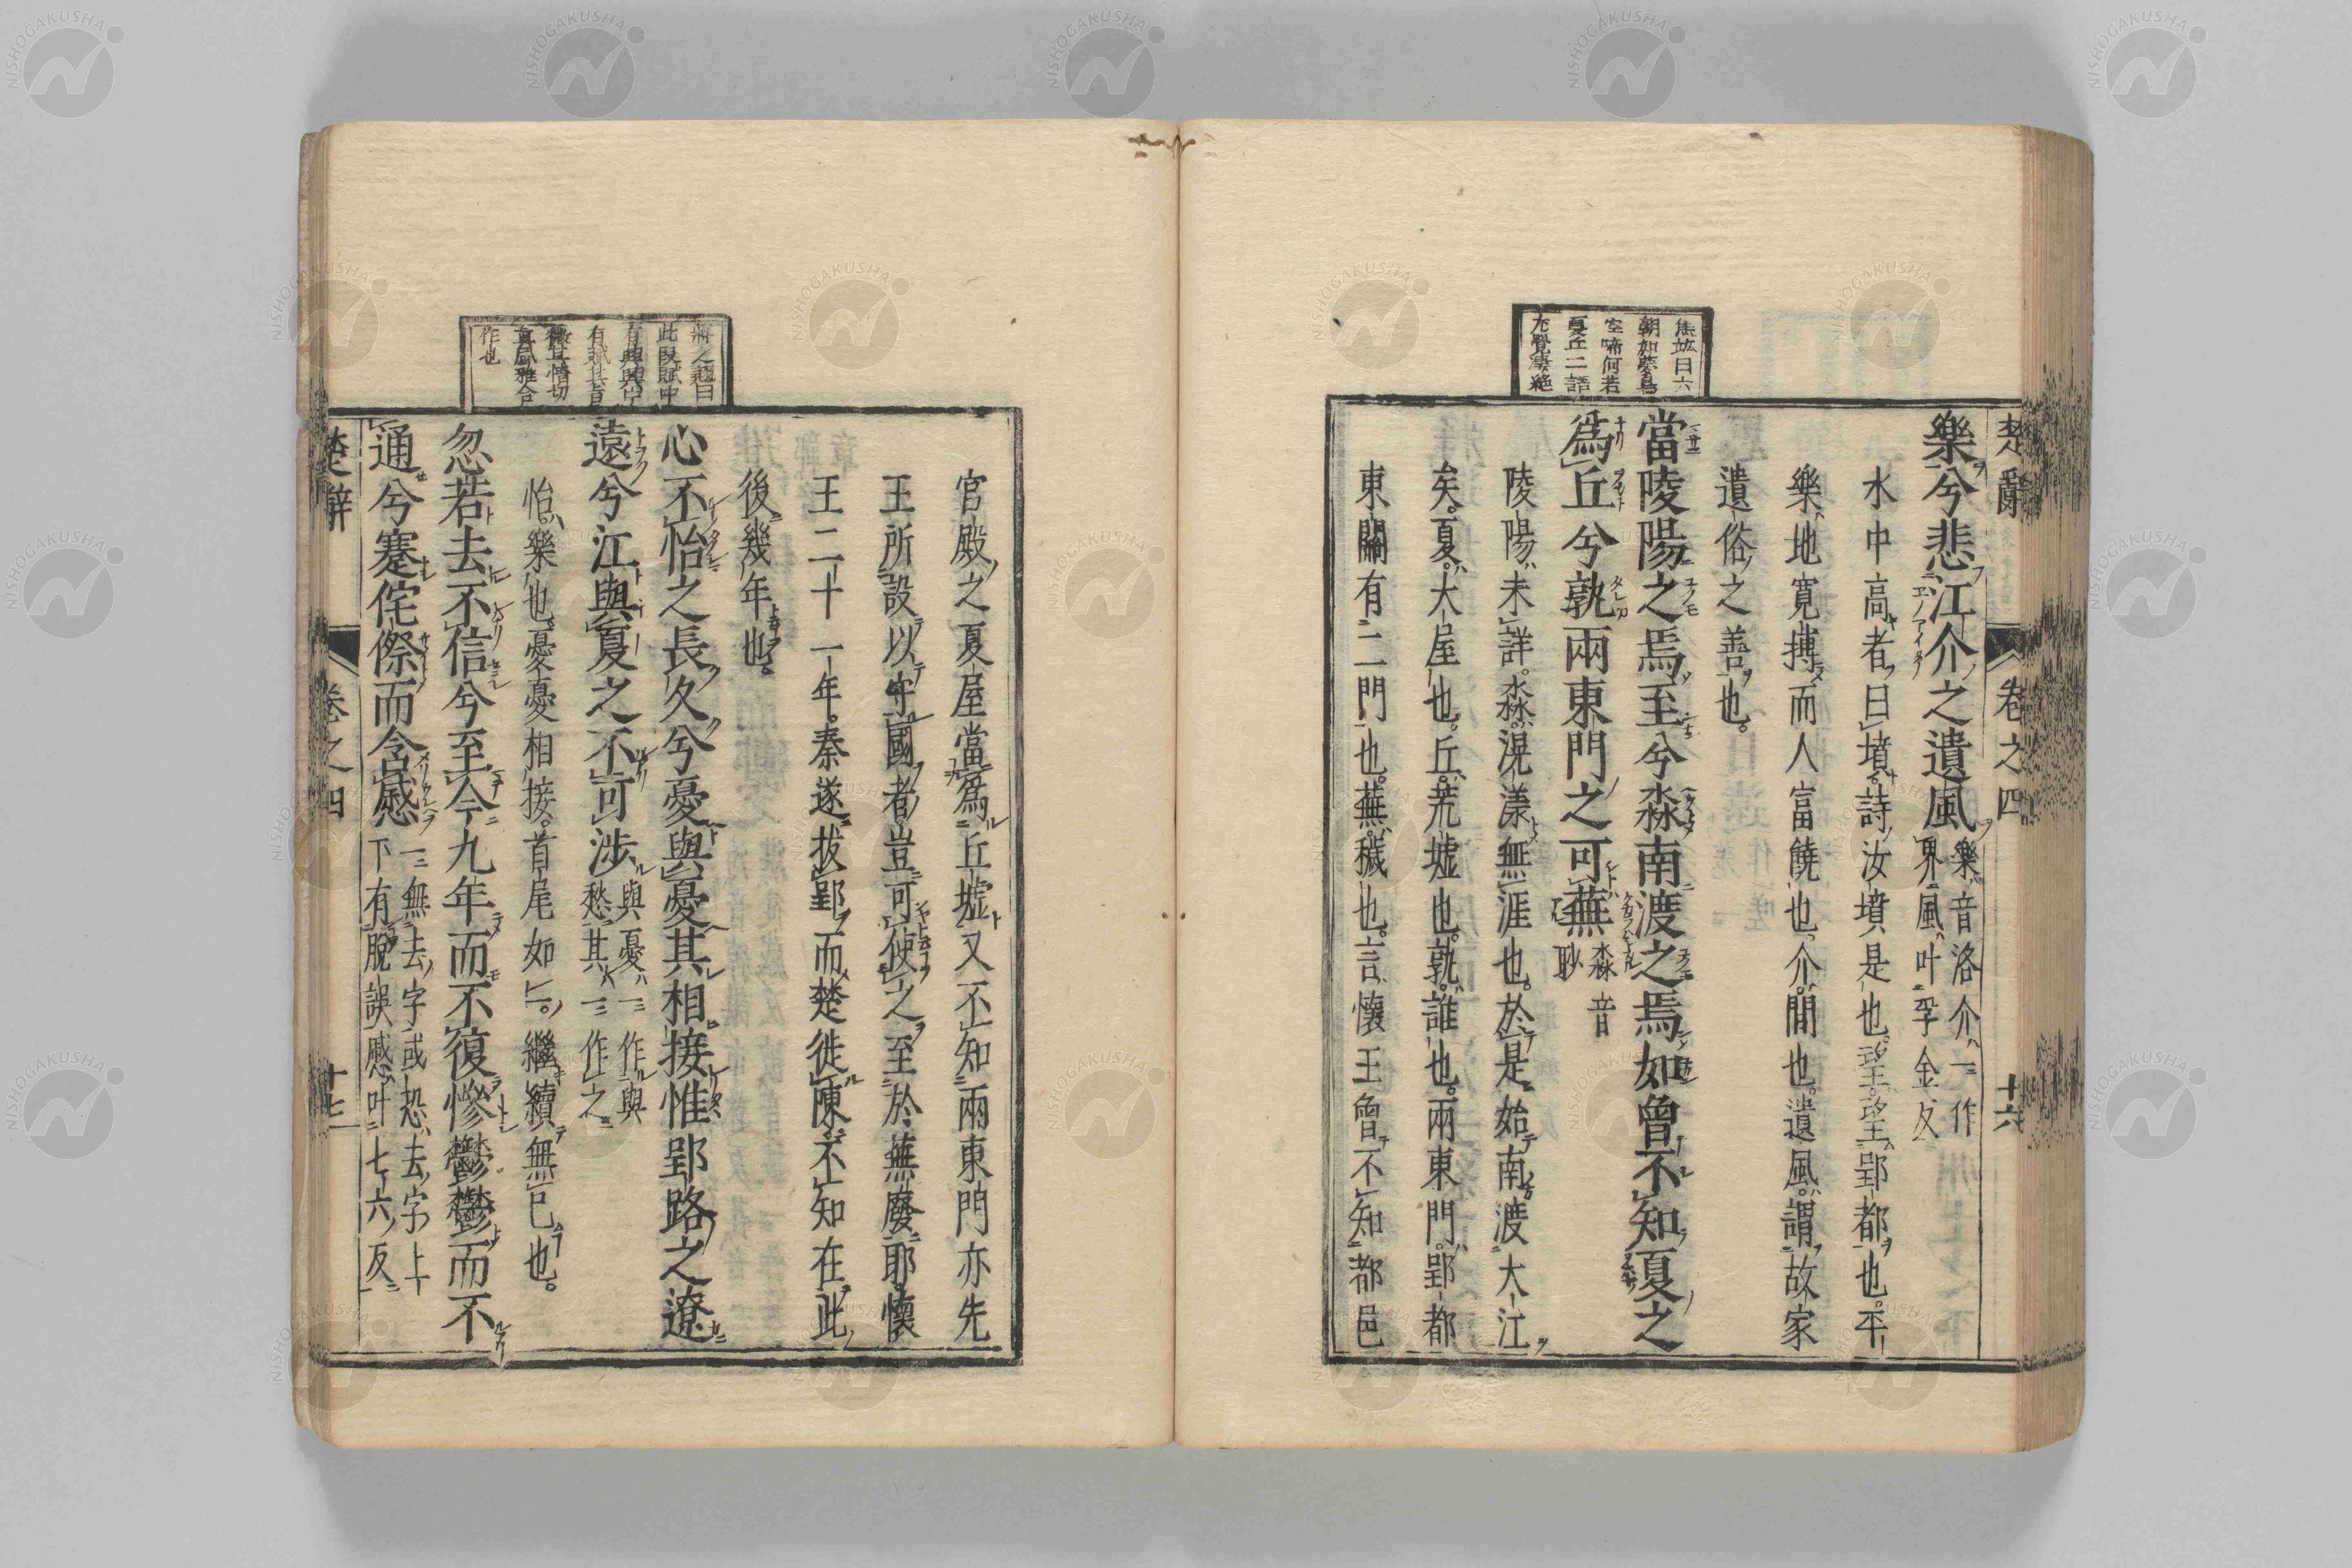 楚辭
卷之四
十六
焦竑曰六
朝如夢鳥
空啼何若
夏丘二語
尤覺凄絶
樂兮悲江介之遺風樂音洛介一作
界風叶孚金反
水中高者曰墳詩汝墳是也望望郢都也平
樂地寬摶而人富饒也介間也遺風謂故家
遺俗之善也
當陵陽之焉至兮淼南渡之焉如曾不知夏之
爲丘兮孰兩東門之可蕪淼音
眇
陵陽未詳淼滉漾無涯也於是始南渡大江
矣夏大屋也丘荒墟也孰誰也兩東門郢都
東關有二門也蕪穢也言懷王曾不知都邑
官殿之夏屋當爲丘墟又不知兩東門亦先
王所設以守國者豈可使之至於蕪廢耶懷
王二十一年秦遂拔郢而楚徙陳不知在此
後幾年也
蔣之翹曰
此段賦中
有興興中
有賦其
極其情切
真風雅合
作也
心不怡之長久兮憂與憂其相接惟郢路之遼
遠兮江與夏之不可涉與憂一作與
愁其一作之
怡樂也憂憂相接首尾如一繼續無已也
忽若去不信兮至今九年而不復慘鬱鬱而不
通兮蹇侘傺而含慼一無去字或恐去字上
下有脫誤慼叶七六反
楚辭
卷之四
十七